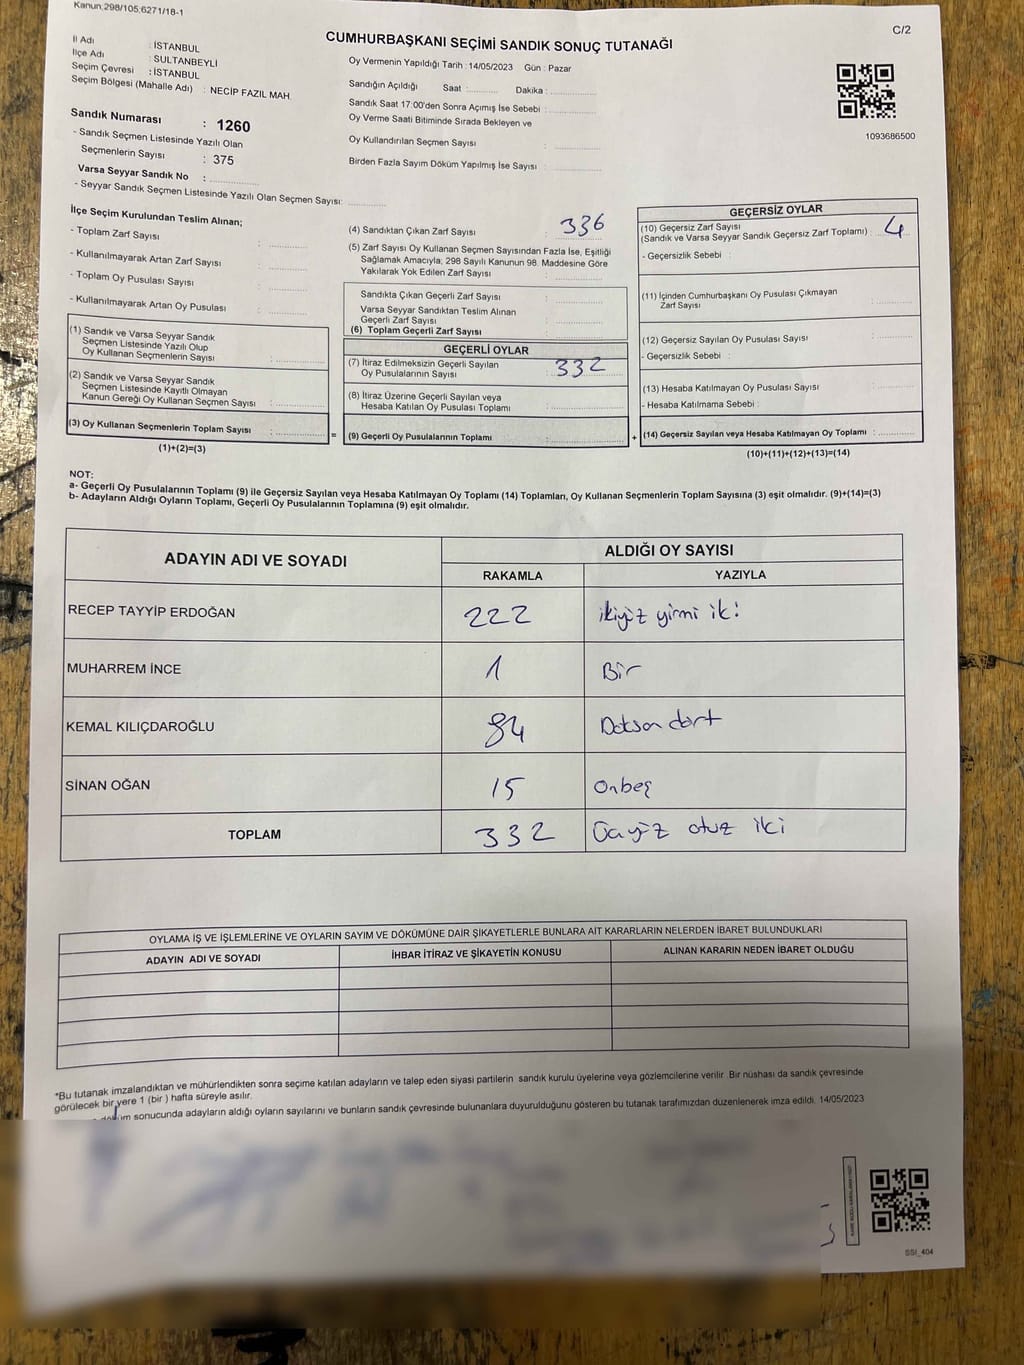 Kanun:298/105;6271/18-1
C/2
CUMHURBAŞKANI SEÇİMİ SANDIK SONUÇ TUTANAĞI
İl Adı : İSTANBUL
İlçe Adı : SULTANBEYLİ
Seçim Çevresi : İSTANBUL
Seçim Bölgesi (Mahalle Adı) : NECİP FAZIL MAH.
Sandık Numarası : 1260
- Sandık Seçmen Listesinde Yazılı Olan
Seçmenlerin Sayısı : 375
Varsa Seyyar Sandık No :
- Seyyar Sandık Seçmen Listesinde Yazılı Olan Seçmen Sayısı:
Oy Vermenin Yapıldığı Tarih : 14/05/2023 Gün : Pazar
Sandığın Açıldığı Saat : Dakika :
Sandık Saat 17:00'den Sonra Açımış İse Sebebi :
Oy Verme Saati Bitiminde Sırada Bekleyen ve
Oy Kullandırılan Seçmen Sayısı :
Birden Fazla Sayım Döküm Yapılmış İse Sayısı :
1093686500
İlçe Seçim Kurulundan Teslim Alınan;
- Toplam Zarf Sayısı :
- Kullanılmayarak Artan Zarf Sayısı :
- Toplam Oy Pusulası Sayısı :
- Kullanılmayarak Artan Oy Pusulası :
(1) Sandık ve Varsa Seyyar Sandık
Seçmen Listesinde Yazılı Olup
Oy Kullanan Seçmenlerin Sayısı :
(2) Sandık ve Varsa Seyyar Sandık
Seçmen Listesinde Kayıtlı Olmayan
Kanun Gereği Oy Kullanan Seçmen Sayısı :
(3) Oy Kullanan Seçmenlerin Toplam Sayısı :
(1)+(2)=(3)
(4) Sandıktan Çıkan Zarf Sayısı : 336
(5) Zarf Sayısı Oy Kullanan Seçmen Sayısından Fazla İse, Eşitliği
Sağlamak Amacıyla; 298 Sayılı Kanunun 98. Maddesine Göre
Yakılarak Yok Edilen Zarf Sayısı :
Sandıkta Çıkan Geçerli Zarf Sayısı :
Varsa Seyyar Sandıktan Teslim Alınan
Geçerli Zarf Sayısı :
(6) Toplam Geçerli Zarf Sayısı :
GEÇERLİ OYLAR
(7) İtiraz Edilmeksizin Geçerli Sayılan
Oy Pusulalarının Sayısı : 332
(8) İtiraz Üzerine Geçerli Sayılan veya
Hesaba Katılan Oy Pusulası Toplamı :
= (9) Geçerli Oy Pusulalarının Toplamı :
GEÇERSİZ OYLAR
(10) Geçersiz Zarf Sayısı
(Sandık ve Varsa Seyyar Sandık Geçersiz Zarf Toplamı) : 4
- Geçersizlik Sebebi :
(11) İçinden Cumhurbaşkanı Oy Pusulası Çıkmayan
Zarf Sayısı :
(12) Geçersiz Sayılan Oy Pusulası Sayısı :
- Geçersizlik Sebebi :
(13) Hesaba Katılmayan Oy Pusulası Sayısı :
- Hesaba Katılmama Sebebi :
+ (14) Geçersiz Sayılan veya Hesaba Katılmayan Oy Toplamı :
(10)+(11)+(12)+(13)=(14)
NOT:
a- Geçerli Oy Pusulalarının Toplamı (9) ile Geçersiz Sayılan veya Hesaba Katılmayan Oy Toplamı (14) Toplamları, Oy Kullanan Seçmenlerin Toplam Sayısına (3) eşit olmalıdır. (9)+(14)=(3)
b- Adayların Aldığı Oyların Toplamı, Geçerli Oy Pusulalarının Toplamına (9) eşit olmalıdır.
ADAYIN ADI VE SOYADI
ALDIĞI OY SAYISI
RAKAMLA YAZIYLA
RECEP TAYYİP ERDOĞAN 222 ikiyüz yirmi iki
MUHARREM İNCE 1 Bir
KEMAL KILIÇDAROĞLU 94 Doksan dört
SİNAN OĞAN 15 Onbeş
TOPLAM 332 Üçyüz otuz iki
OYLAMA İŞ VE İŞLEMLERİNE VE OYLARIN SAYIM VE DÖKÜMÜNE DAİR ŞİKAYETLERLE BUNLARA AİT KARARLARIN NELERDEN İBARET BULUNDUKLARI
ADAYIN ADI VE SOYADI İHBAR İTİRAZ VE ŞİKAYETİN KONUSU ALINAN KARARIN NEDEN İBARET OLDUĞU
*Bu tutanak imzalandıktan ve mühürlendikten sonra seçime katılan adayların ve talep eden siyasi partilerin sandık kurulu üyelerine veya gözlemcilerine verilir. Bir nüshası da sandık çevresinde
görülecek bir yere 1 (bir ) hafta süreyle asılır.
döküm sonucunda adayların aldığı oyların sayılarını ve bunların sandık çevresinde bulunanlara duyurulduğunu gösteren bu tutanak tarafımızdan düzenlenerek imza edildi. 14/05/2023
SSI_404